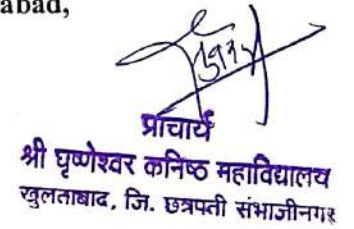 abad,
प्राचार्य
श्री घृष्णेश्वर कनिष्ठ महाविद्यालय
खुलताबाद, जि. छत्रपती संभाजीनगर